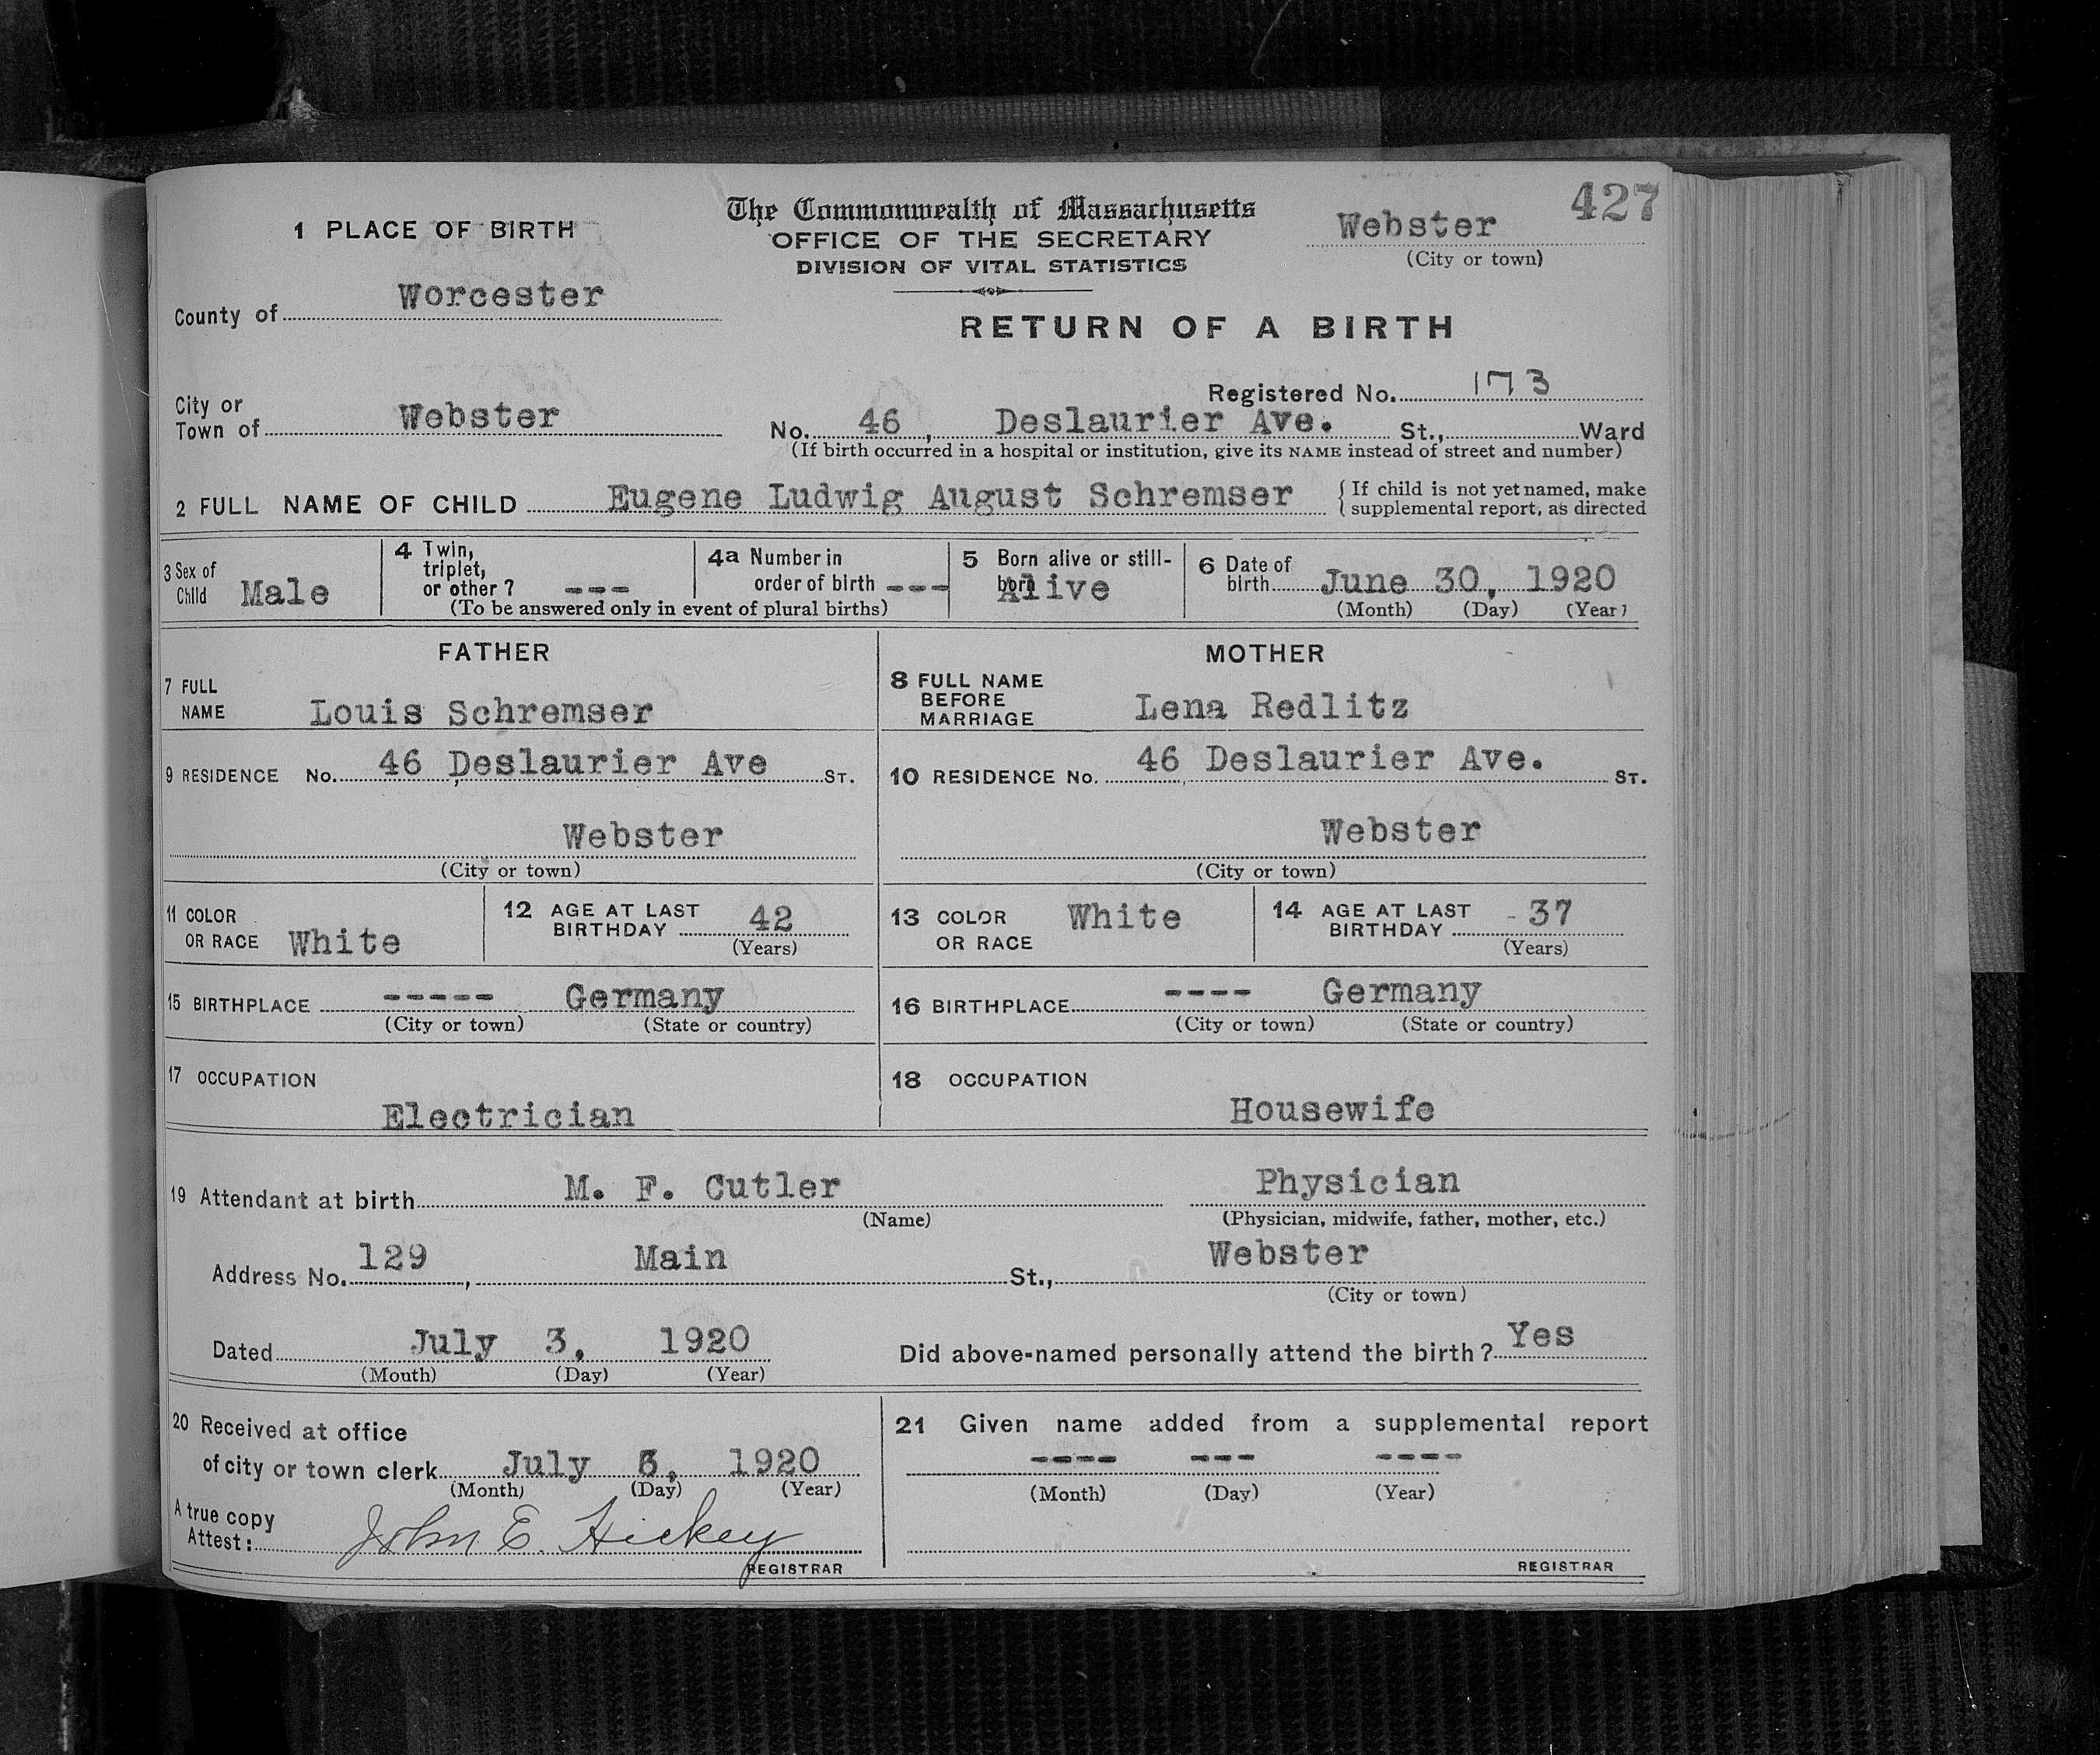 427
The Commonwealth of Massachusetts
1 PLACE OF BIRTH
OFFICE OF THE SECRETARY
Webster
DIVISION OF VITAL STATISTICS
(City or town)
County of Worcester
RETURN OF A BIRTH
Registered No. 173
City or
Town of Webster
No. 46, Deslaurier Ave. St., Ward
(If birth occurred in a hospital or institution, give its NAME instead of street and number)
2 FULL NAME OF CHILD Eugene Ludwig August Schremser
{ If child is not yet named, make
supplemental report, as directed
3 Sex of
Child Male
4 Twin,
triplet,
or other? ---
4a Number in
order of birth ---
(To be answered only in event of plural births)
5 Born alive or still-
born Alive
6 Date of
birth June 30, 1920
(Month) (Day) (Year)
FATHER
7 FULL
NAME Louis Schremser
9 RESIDENCE No. 46 Deslaurier Ave ST.
Webster
(City or town)
11 COLOR
OR RACE White
12 AGE AT LAST
BIRTHDAY 42
(Years)
15 BIRTHPLACE ----- Germany
(City or town) (State or country)
17 OCCUPATION
Electrician
MOTHER
8 FULL NAME
BEFORE
MARRIAGE Lena Redlitz
10 RESIDENCE No. 46 Deslaurier Ave. ST.
Webster
(City or town)
13 COLOR
OR RACE White
14 AGE AT LAST
BIRTHDAY 37
(Years)
16 BIRTHPLACE ---- Germany
(City or town) (State or country)
18 OCCUPATION
Housewife
19 Attendant at birth M. F. Cutler Physician
(Name) (Physician, midwife, father, mother, etc.)
Address No. 129, Main St., Webster
(City or town)
Dated July 3, 1920 Did above-named personally attend the birth? Yes
(Month) (Day) (Year)
20 Received at office
of city or town clerk July , 1920
(Month) (Day) (Year)
A true copy
Attest: John E. Hickey
REGISTRAR
21 Given name added from a supplemental report
---- --- ----
(Month) (Day) (Year)
REGISTRAR